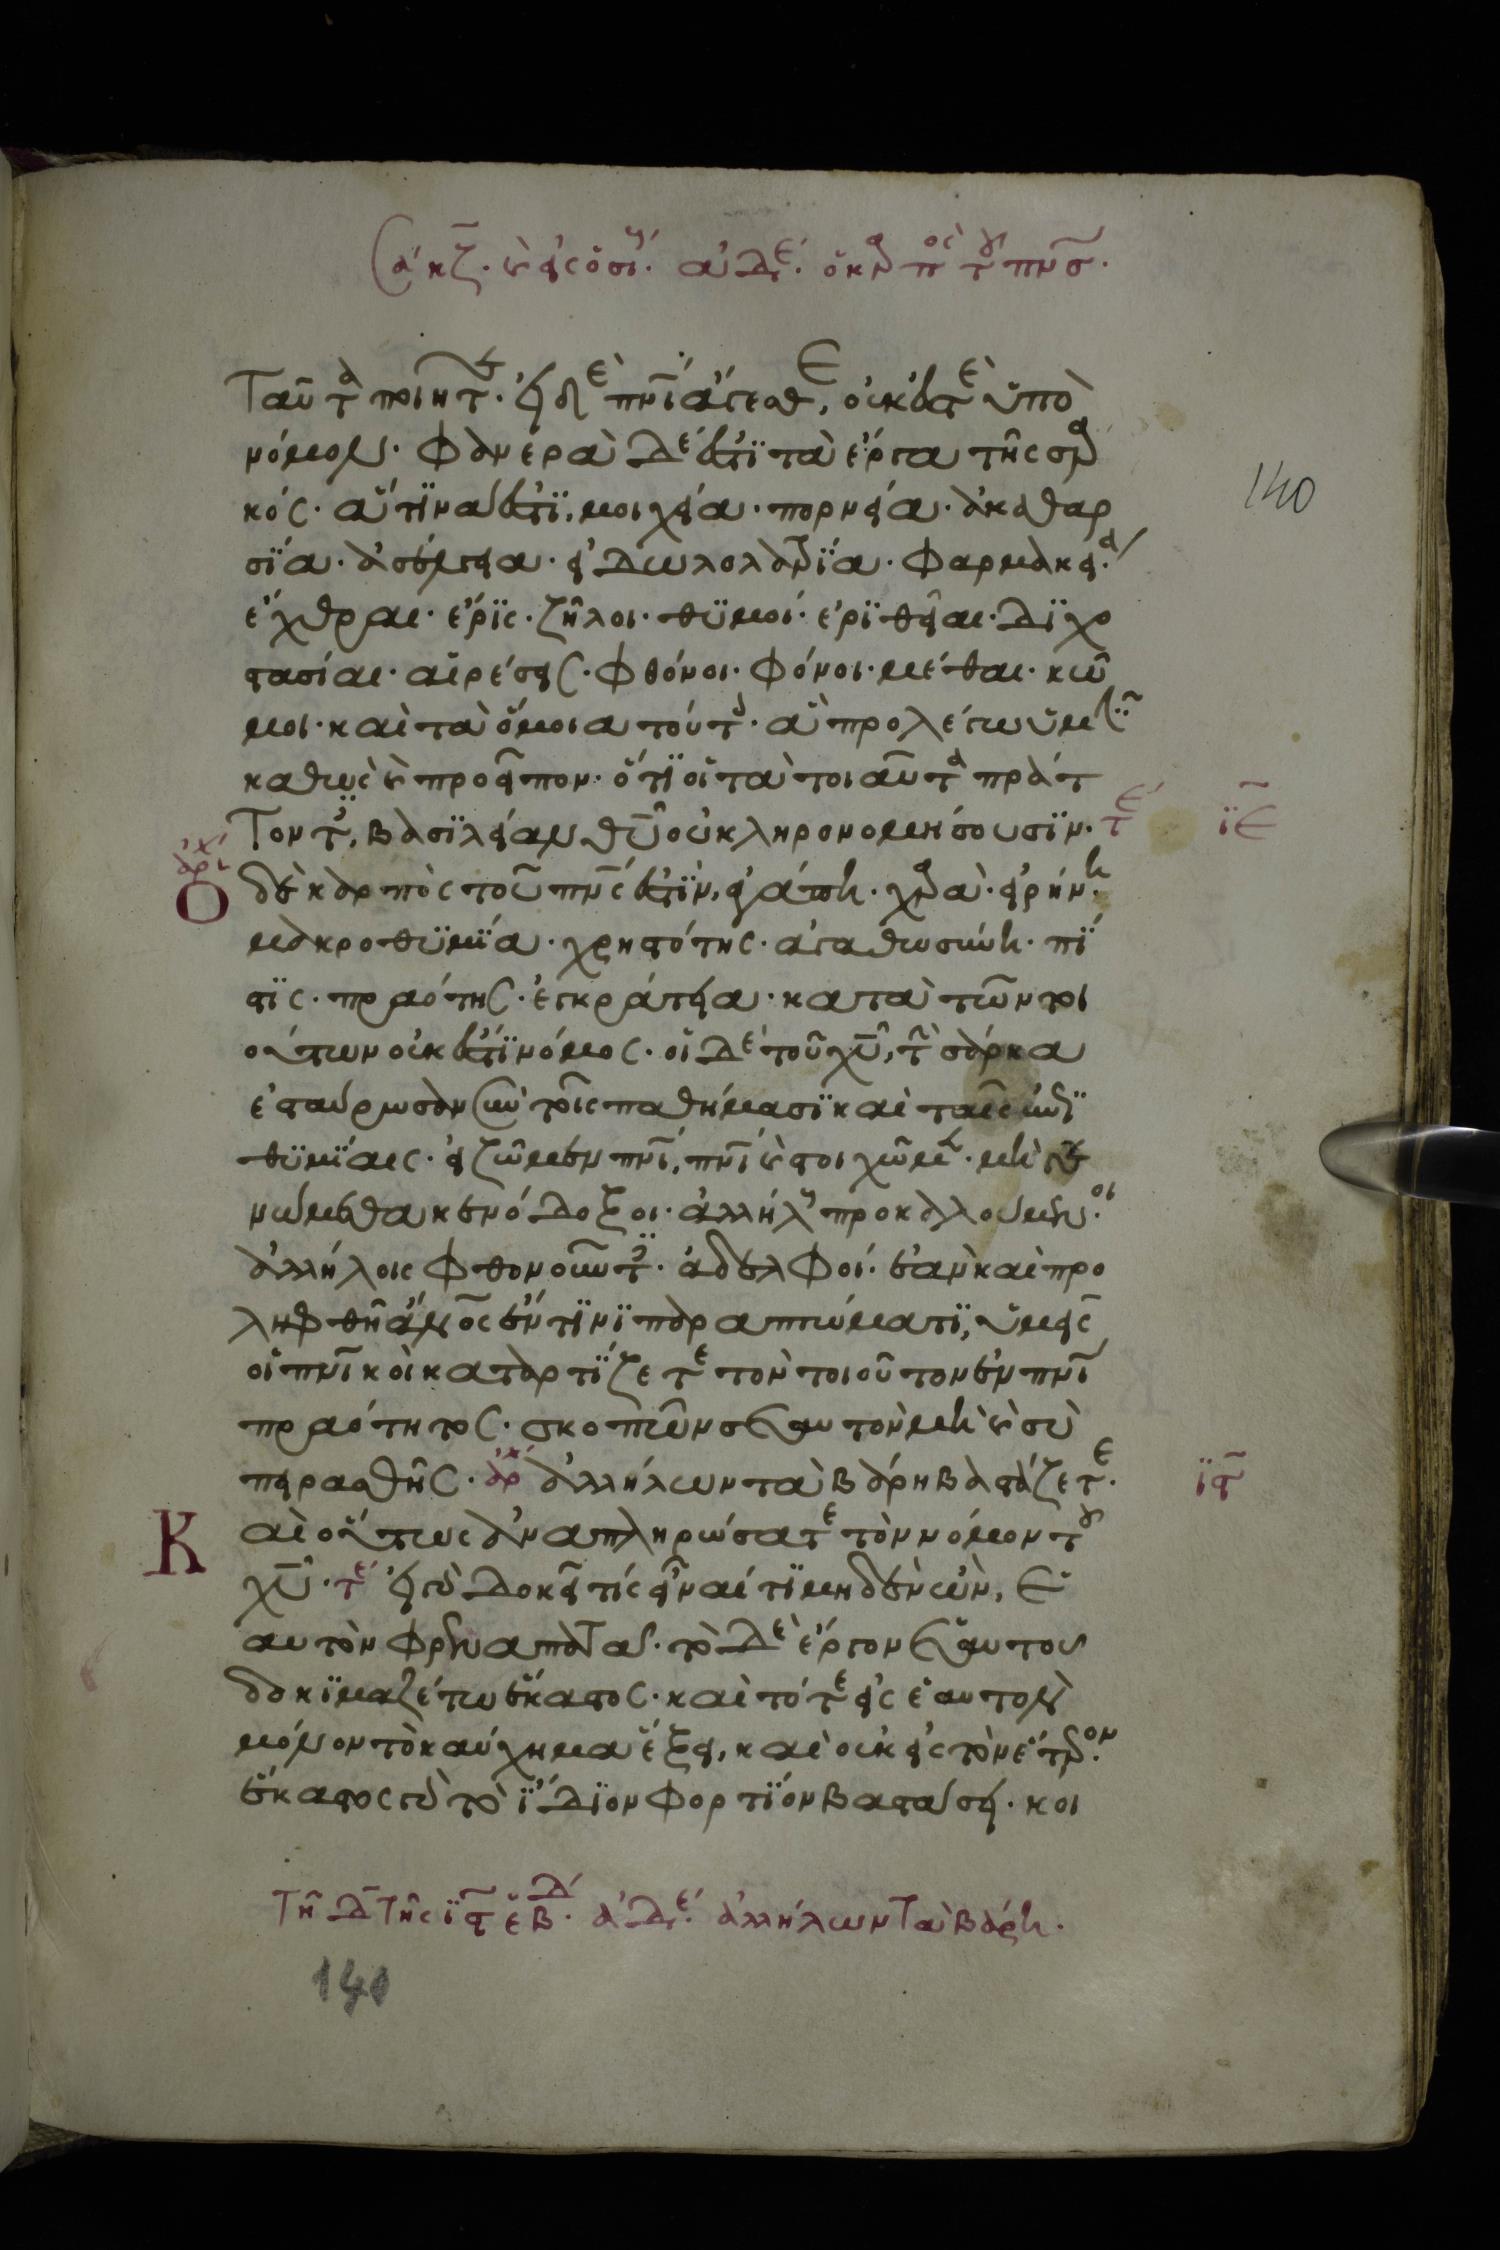 ταῦτα ποιῆτε. εἰ δὲ πνι ἄγεσθε, οὐκ ἐστὲ ὑπὸ
νόμον. φανερὰ δέ ἐστι τὰ ἔργα τῆς σαρ
κός. ἅτινά ἐστι, μοιχεία. πορνεία. ἀκαθαρ
σία. ἀσέλγεια. εἰδωλολατρία. φαρμακεία.
ἔχθραι. ἔρις. ζῆλοι. θυμοί. ἐριθεῖαι. διχο
στασίαι. αἱρέσεις. φθόνοι. φόνοι. μέθαι. κῶ
μοι. καὶ τὰ ὅμοια τούτοις. ἃ προλέγω ὑμῖν
καθὼς καὶ προεῖπον. ὅτι οἱ τὰ τοιαῦτα πράτ
τοντες, βασιλείαν θυ οὐ κληρονομήσουσιν. τε ιε
Ὁ δὲ καρπὸς του πνς ἐστϊν, ἀγάπη. χαρά. εἰρήνη.
μακροθυμϊα. χρηστότης. ἀγαθωσύνη. πί
στις. πραότης. ἐγκράτεια. κατὰ τῶν τοι
ούτων οὐκ ἔστι νόμος. οἱ δὲ τοῦ χυ, τὴν σάρκα
ἐσταύρωσαν σὺν τοῖς παθήμασι καὶ ταῖς ἐπι
θυμίαις. εἰ ζῶμεν πνι, πνι καὶ στοιχῶμεν. μὴ γι
νώμεθα κενόδοξοι. ἀλλήλους προκαλούμενοι.
ἀλλήλοις φθονοῦντες. ἀδελφοί. ἐὰν καὶ προ
ληφθῇ ἄνος ἔν τινι παραπτώματι, ὑμεῖς
οἱ πνικοὶ καταρτίζετε τὸν τοιοῦτον ἐν πνι
πραότητος. σκοπῶν σεαυτὸν μὴ καὶ σὺ
πειρασθῇς. ἀρχ ἀλλήλων τὰ βάρη βαστάζετε. ις
Καὶ οὕτως ἀναπληρώσατε τὸν νόμον του
χυ. τε εἰ γὰρ δοκεῖ τίς εἶναί τι μηδὲν ὤν, ε
αυτὸν φρεναπατᾶ. τὸ δὲ ἔργον ἑαυτοῦ
δοκιμαζέτω ἕκαστος. καὶ τότε εἰς ἑαυτὸν
μόνον τὸ καύχημα ἕξει, καὶ οὐκ εἰς τὸν ἕτερον.
ἕκαστος γὰρ τὸ ἴδιον φορτίον βαστάσει. κοι
Τῇ δ τῆς ις ἑβδ. ἀδε. ἀλλήλων τὰ βάρη.
140
140